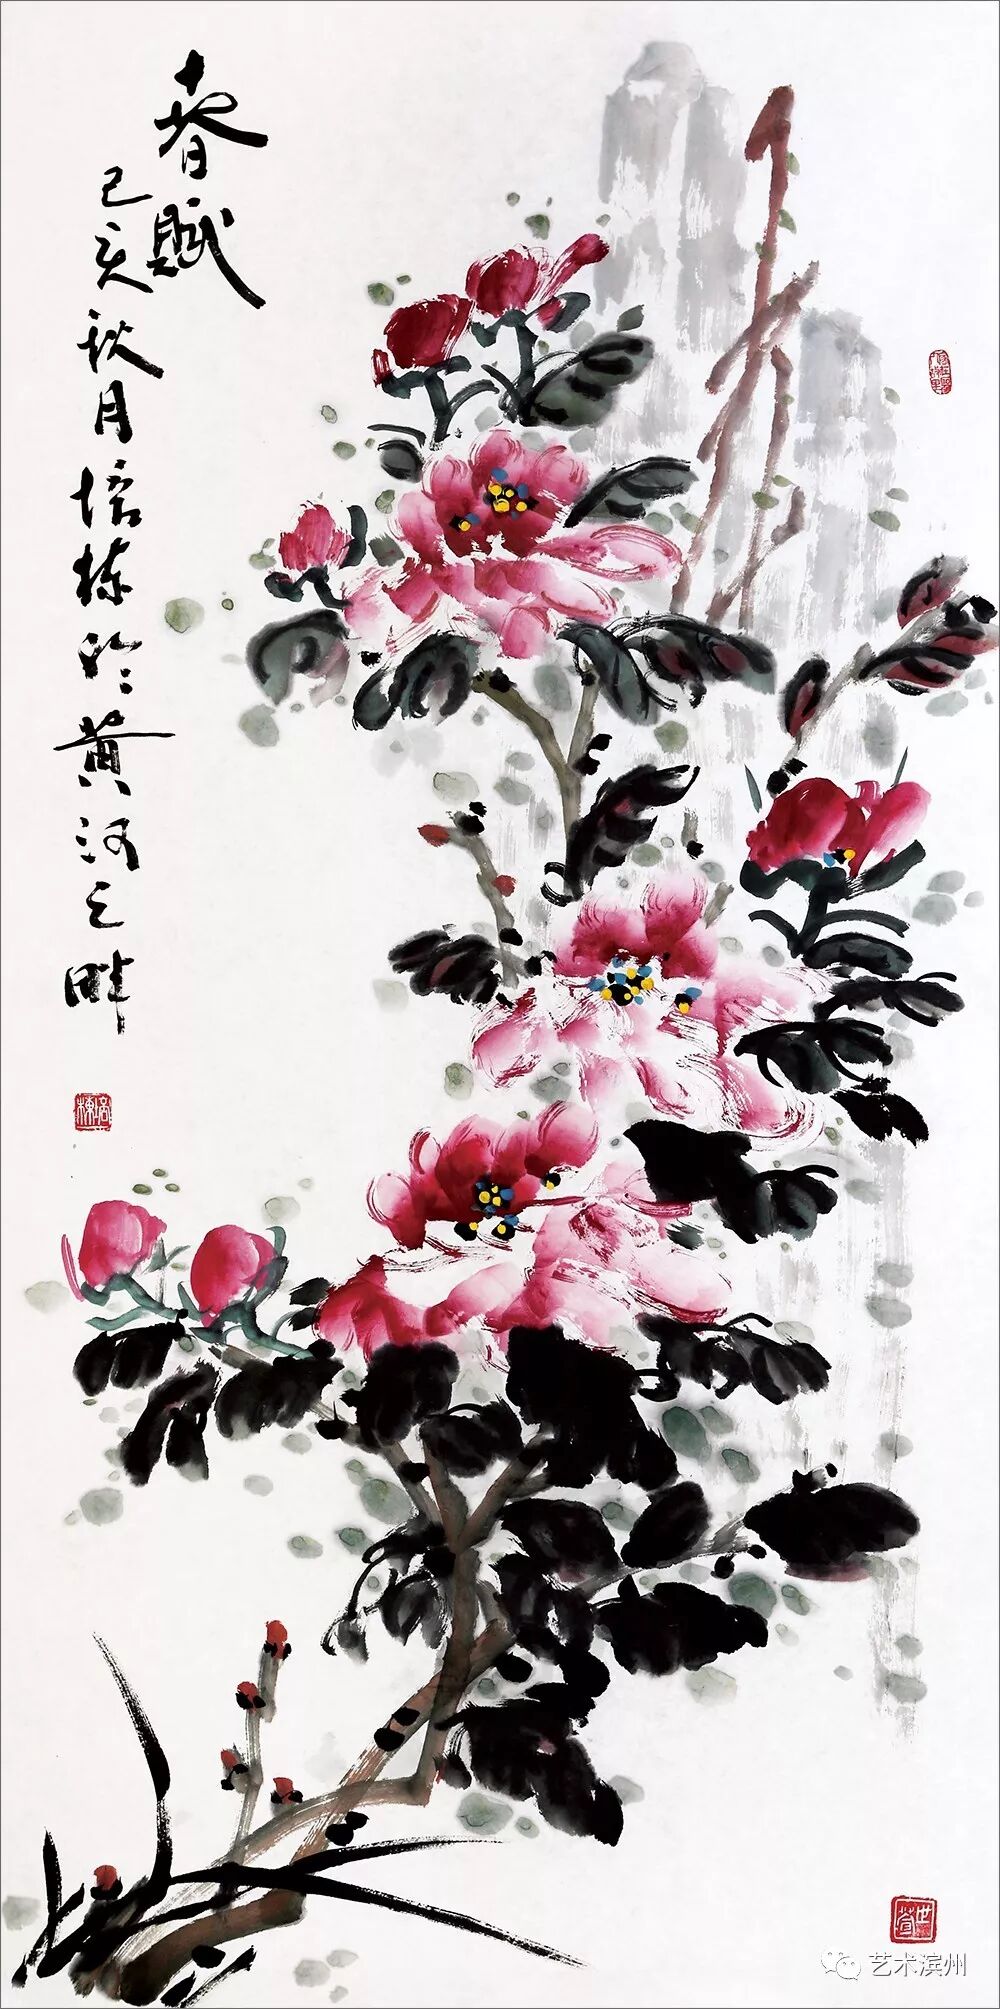 春赋
己亥秋月培栋於黄河之畔
培栋
艺术滨州